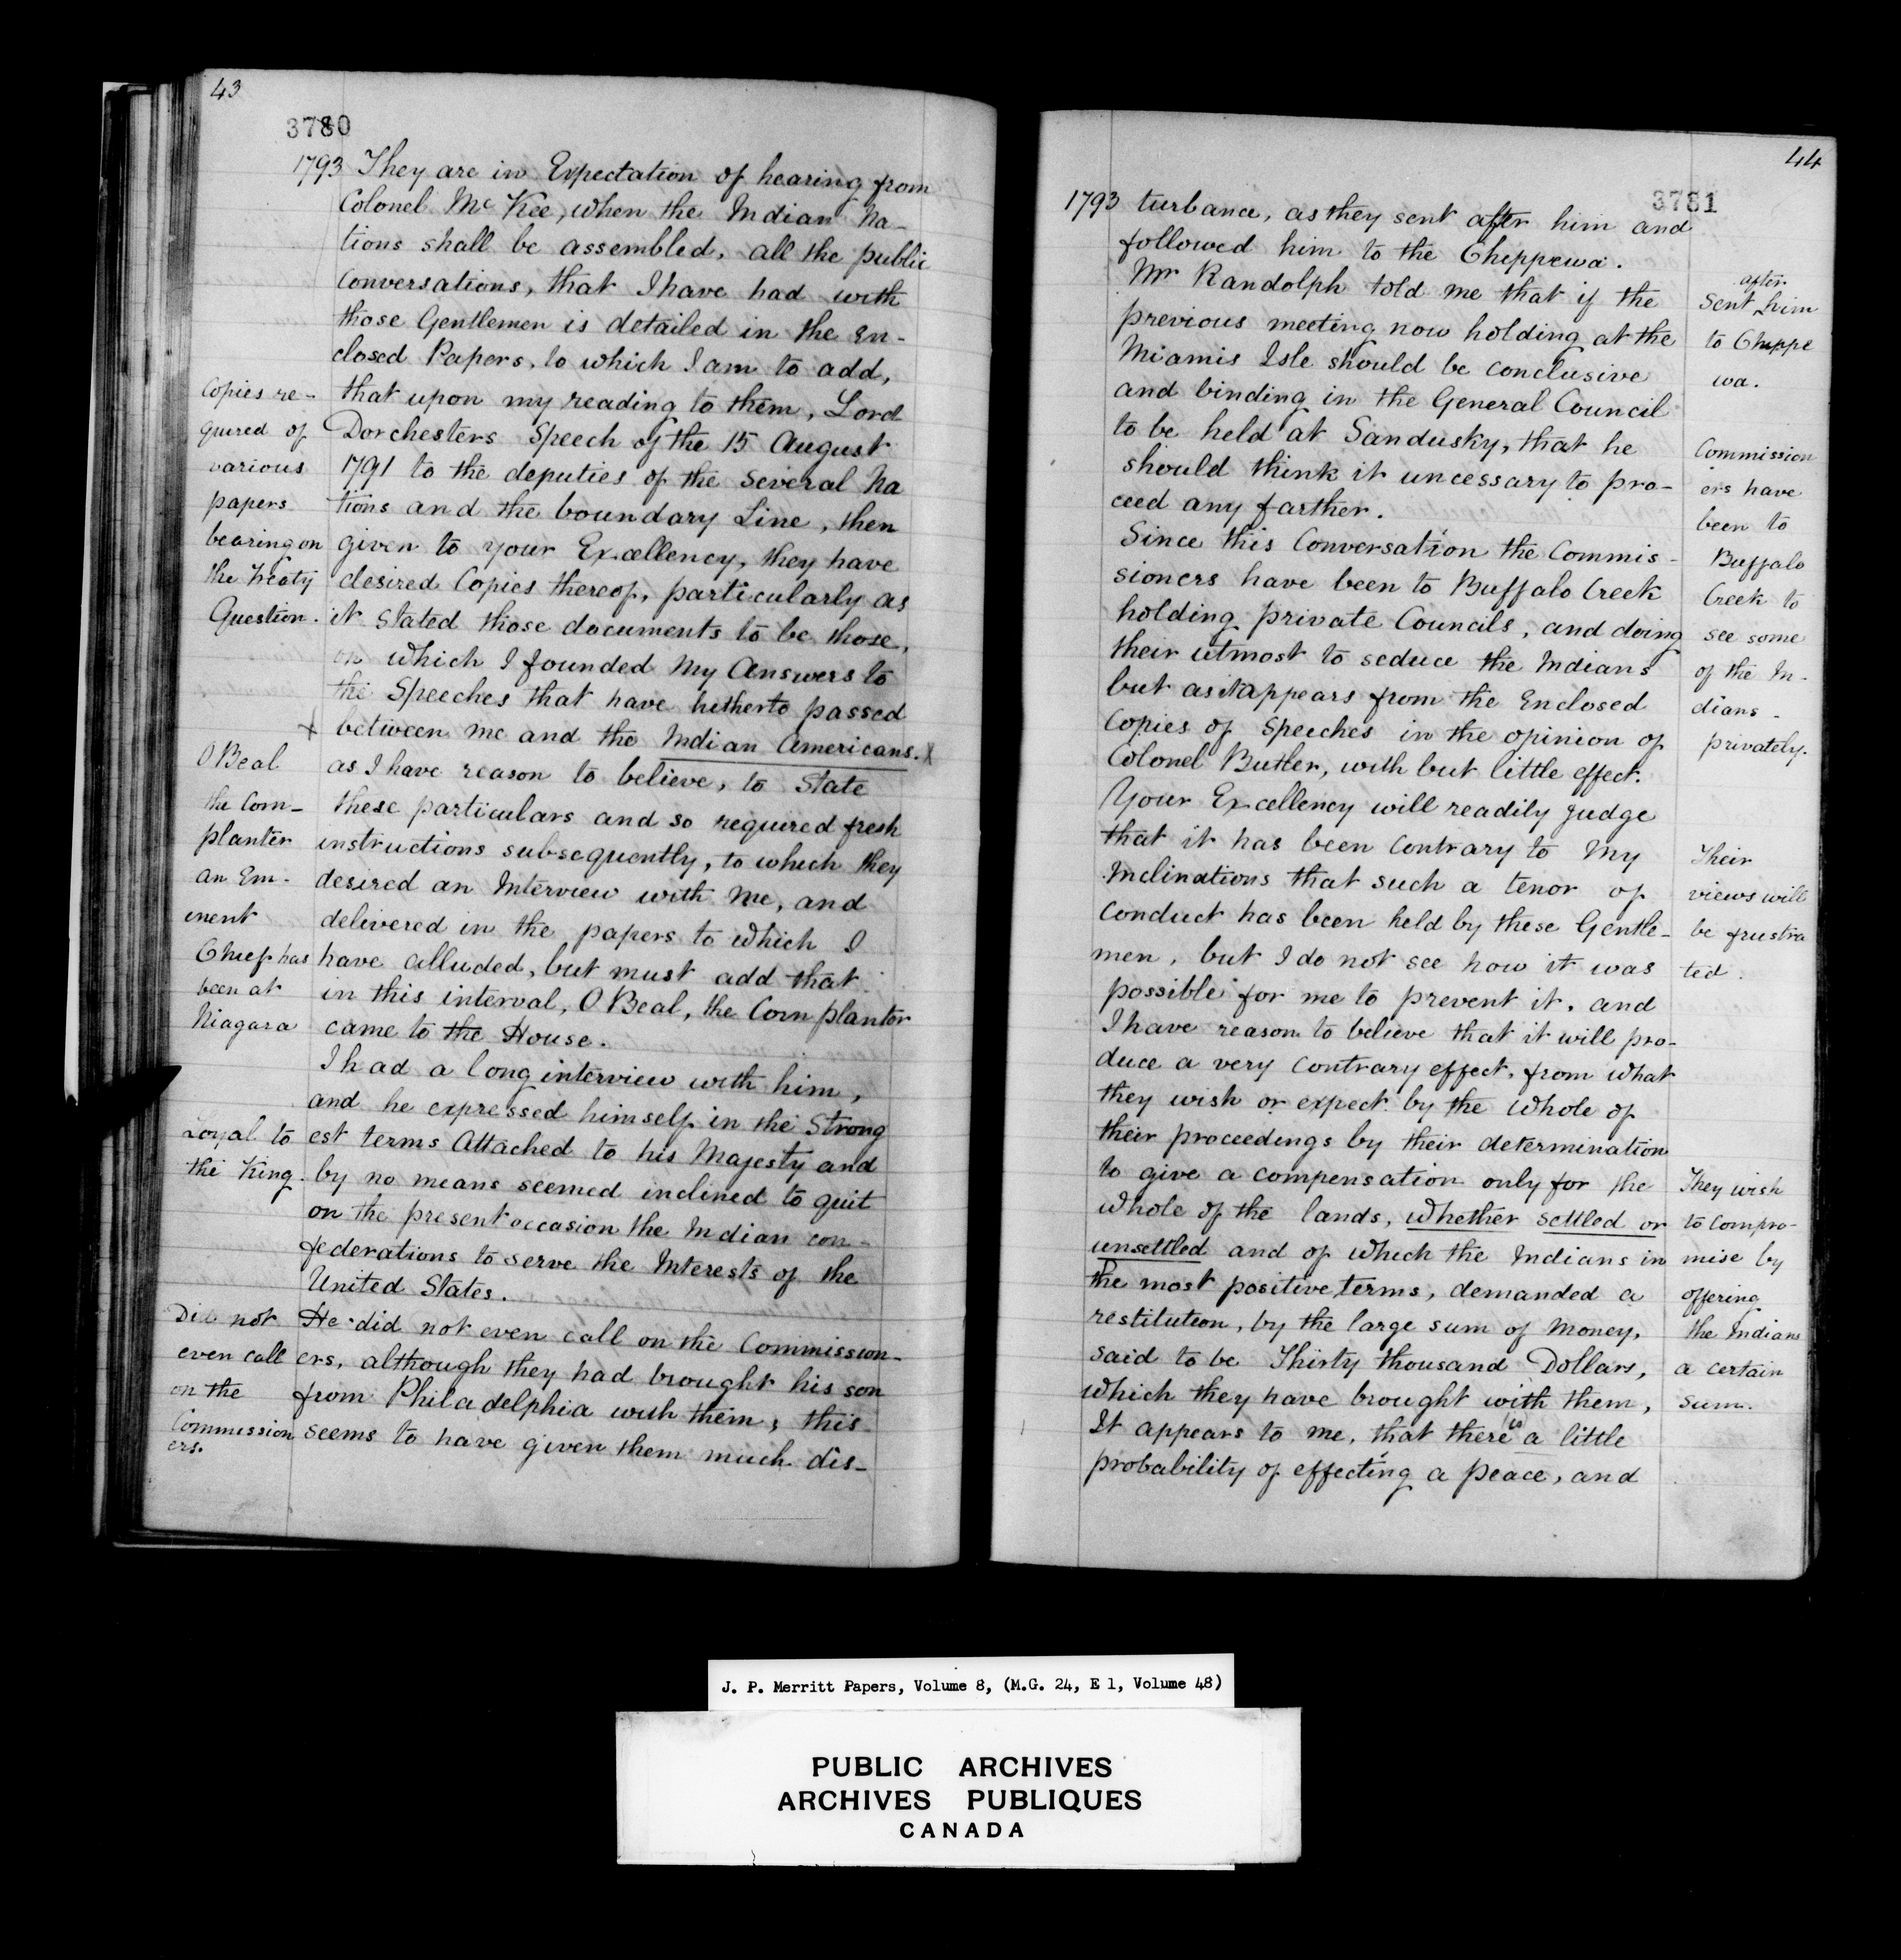 43
3780
1793 They are in Expectation of hearing from
Colonel Mc Kee, when the Indian Na-
tions shall be assembled, all the public
Conversations, that I have had with
those Gentlemen is detailed in the En-
closed Papers, to which I am to add,
that upon my reading to them, Lord
Dorchesters Speech of the 15 August
1791 to the deputies of the several Na
tions and the boundary Line, then
given to your Excellency, they have
desired Copies thereof, particularly as
it stated those documents to be those,
on which I founded My Answers to
the Speeches that have hitherto passed
x between me and the Indian Americans. x
as I have reason to believe, to State
these particulars and so required fresh
instructions subsequently, to which they
desired an Interview with Me, and
delivered in the papers to which I
have alluded, but must add that
in this interval, O Beal, the Corn plantor
came to the House.
I had a long interview with him,
and he expressed himself in the Strong
est terms Attached to his Majesty and
by no means seemed inclined to quit
on the present occasion the Indian con-
federations to serve the Interests of the
United States.
He did not even call on the Commission-
ers, although they had brought his son
from Philadelphia with them, this
seems to have given them much dis-
Copies re-
quired of
various
papers
bearing on
the Treaty
Question.
O Beal
the Corn-
planter
an Em-
inent
Chief has
been at
Niagara
Loyal to
the King.
Did not
even call
on the
Commission
ers.
44
3781
1793 turbance, as they sent after him and
followed him to the Cheppewa.
Mr Randolph told me that if the
previous meeting now holding at the
Miamis Isle should be conclusive
and binding in the General Council
to be held at Sandusky, that he
should think it uncessary to pro-
ceed any farther.
Since this Conversation the Commis-
sioners have been to Buffalo Creek
holding private Councils, and doing
their utmost to seduce the Indians
but as it appears from the Enclosed
Copies of Speeches in the opinion of
Colonel Butler, with but little effect.
Your Excellency will readily judge
that it has been Contrary to My
Inclinations that such a tenor of
Conduct has been held by these Gentle-
men, but I do not see how it was
possible for me to prevent it, and
I have reason to believe that it will pro-
duce a very contrary effect, from what
they wish or expect by the whole of
their proceedings by their determination
to give a compensation only for the
whole of the lands, whether settled or
unsettled and of which the Indians in
the most positive terms, demanded a
restitution, by the large sum of Money,
said to be Thirty thousand Dollars,
which they have brought with them,
It appears to me, that there is a little
probability of effecting a peace, and
after
Sent him
to Chippe
wa.
Commission
ers have
been to
Buffalo
Creek to
see some
of the In-
dians -
privately.
Their
views will
be frustra
ted.
They wish
to compro-
mise by
offering
the Indians
a certain
sum.
J. P. Merritt Papers, Volume 8, (M.G. 24, E 1, Volume 48)
PUBLIC ARCHIVES
ARCHIVES PUBLIQUES
CANADA